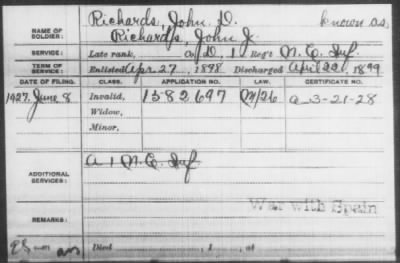 Richards, John D. known as,
NAME OF SOLDIER: Richards, John J.
SERVICE: Late rank, Co. D, 1 Reg't N.C. Inf.
TERM OF SERVICE: Enlisted Apr. 27, 1898 Discharged April 22, 1899
DATE OF FILING. CLASS. APPLICATION NO. CERTIFICATE NO.
1927. June 8 Invalid, 1582697 a 3-21-28
Widow,
Minor,
ADDITIONAL SERVICES: A 1 N.C. Inf
War with Spain
REMARKS:
Died , 1 , at